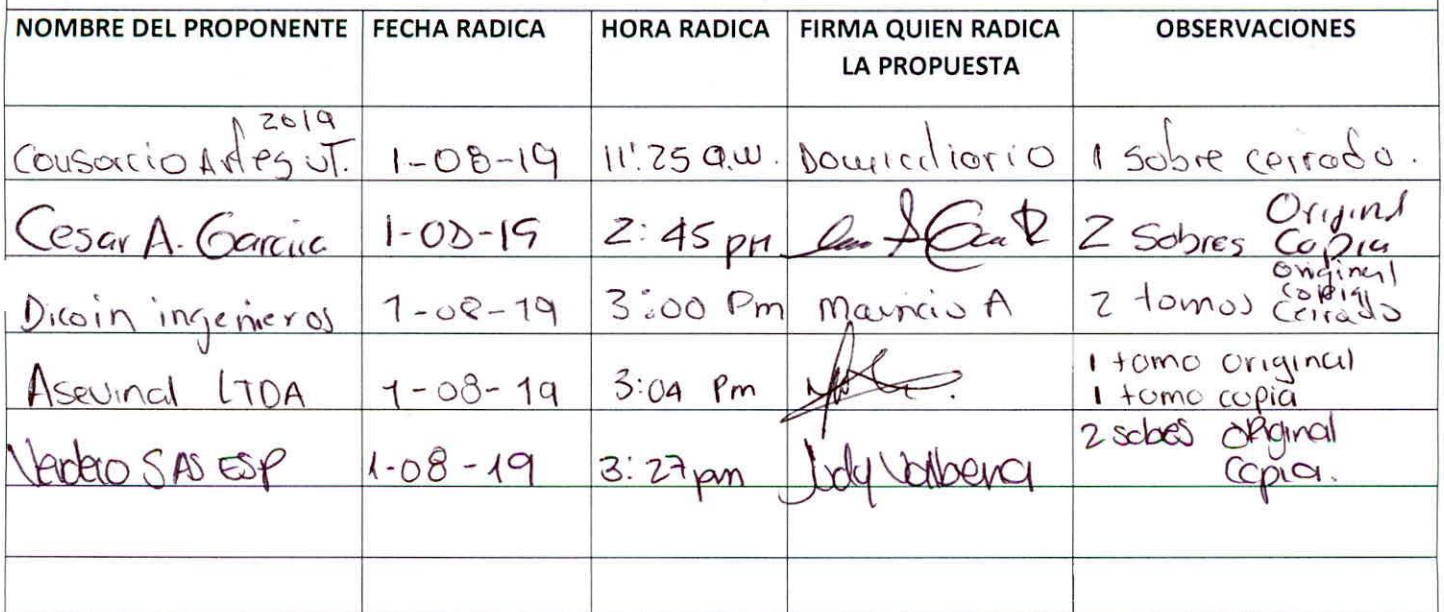 NOMBRE DEL PROPONENTE FECHA RADICA HORA RADICA FIRMA QUIEN RADICA LA PROPUESTA OBSERVACIONES
2019
Consorcio Artes UT. 1-08-19 11:25 a.m. Domiciliario 1 sobre cerrado.
Cesar A. Garcia 1-08-19 2:45 pm 2 Sobres Original Copia
Dicoin ingenieros 1-08-19 3:00 Pm Mauricio A 2 tomos original copia Cerrado
Asevinal LTDA 1-08-19 3:04 Pm 1 tomo original
1 tomo copia
SAS ESP 1-08-19 3:27 pm Judy 2 sobres original
Copia.